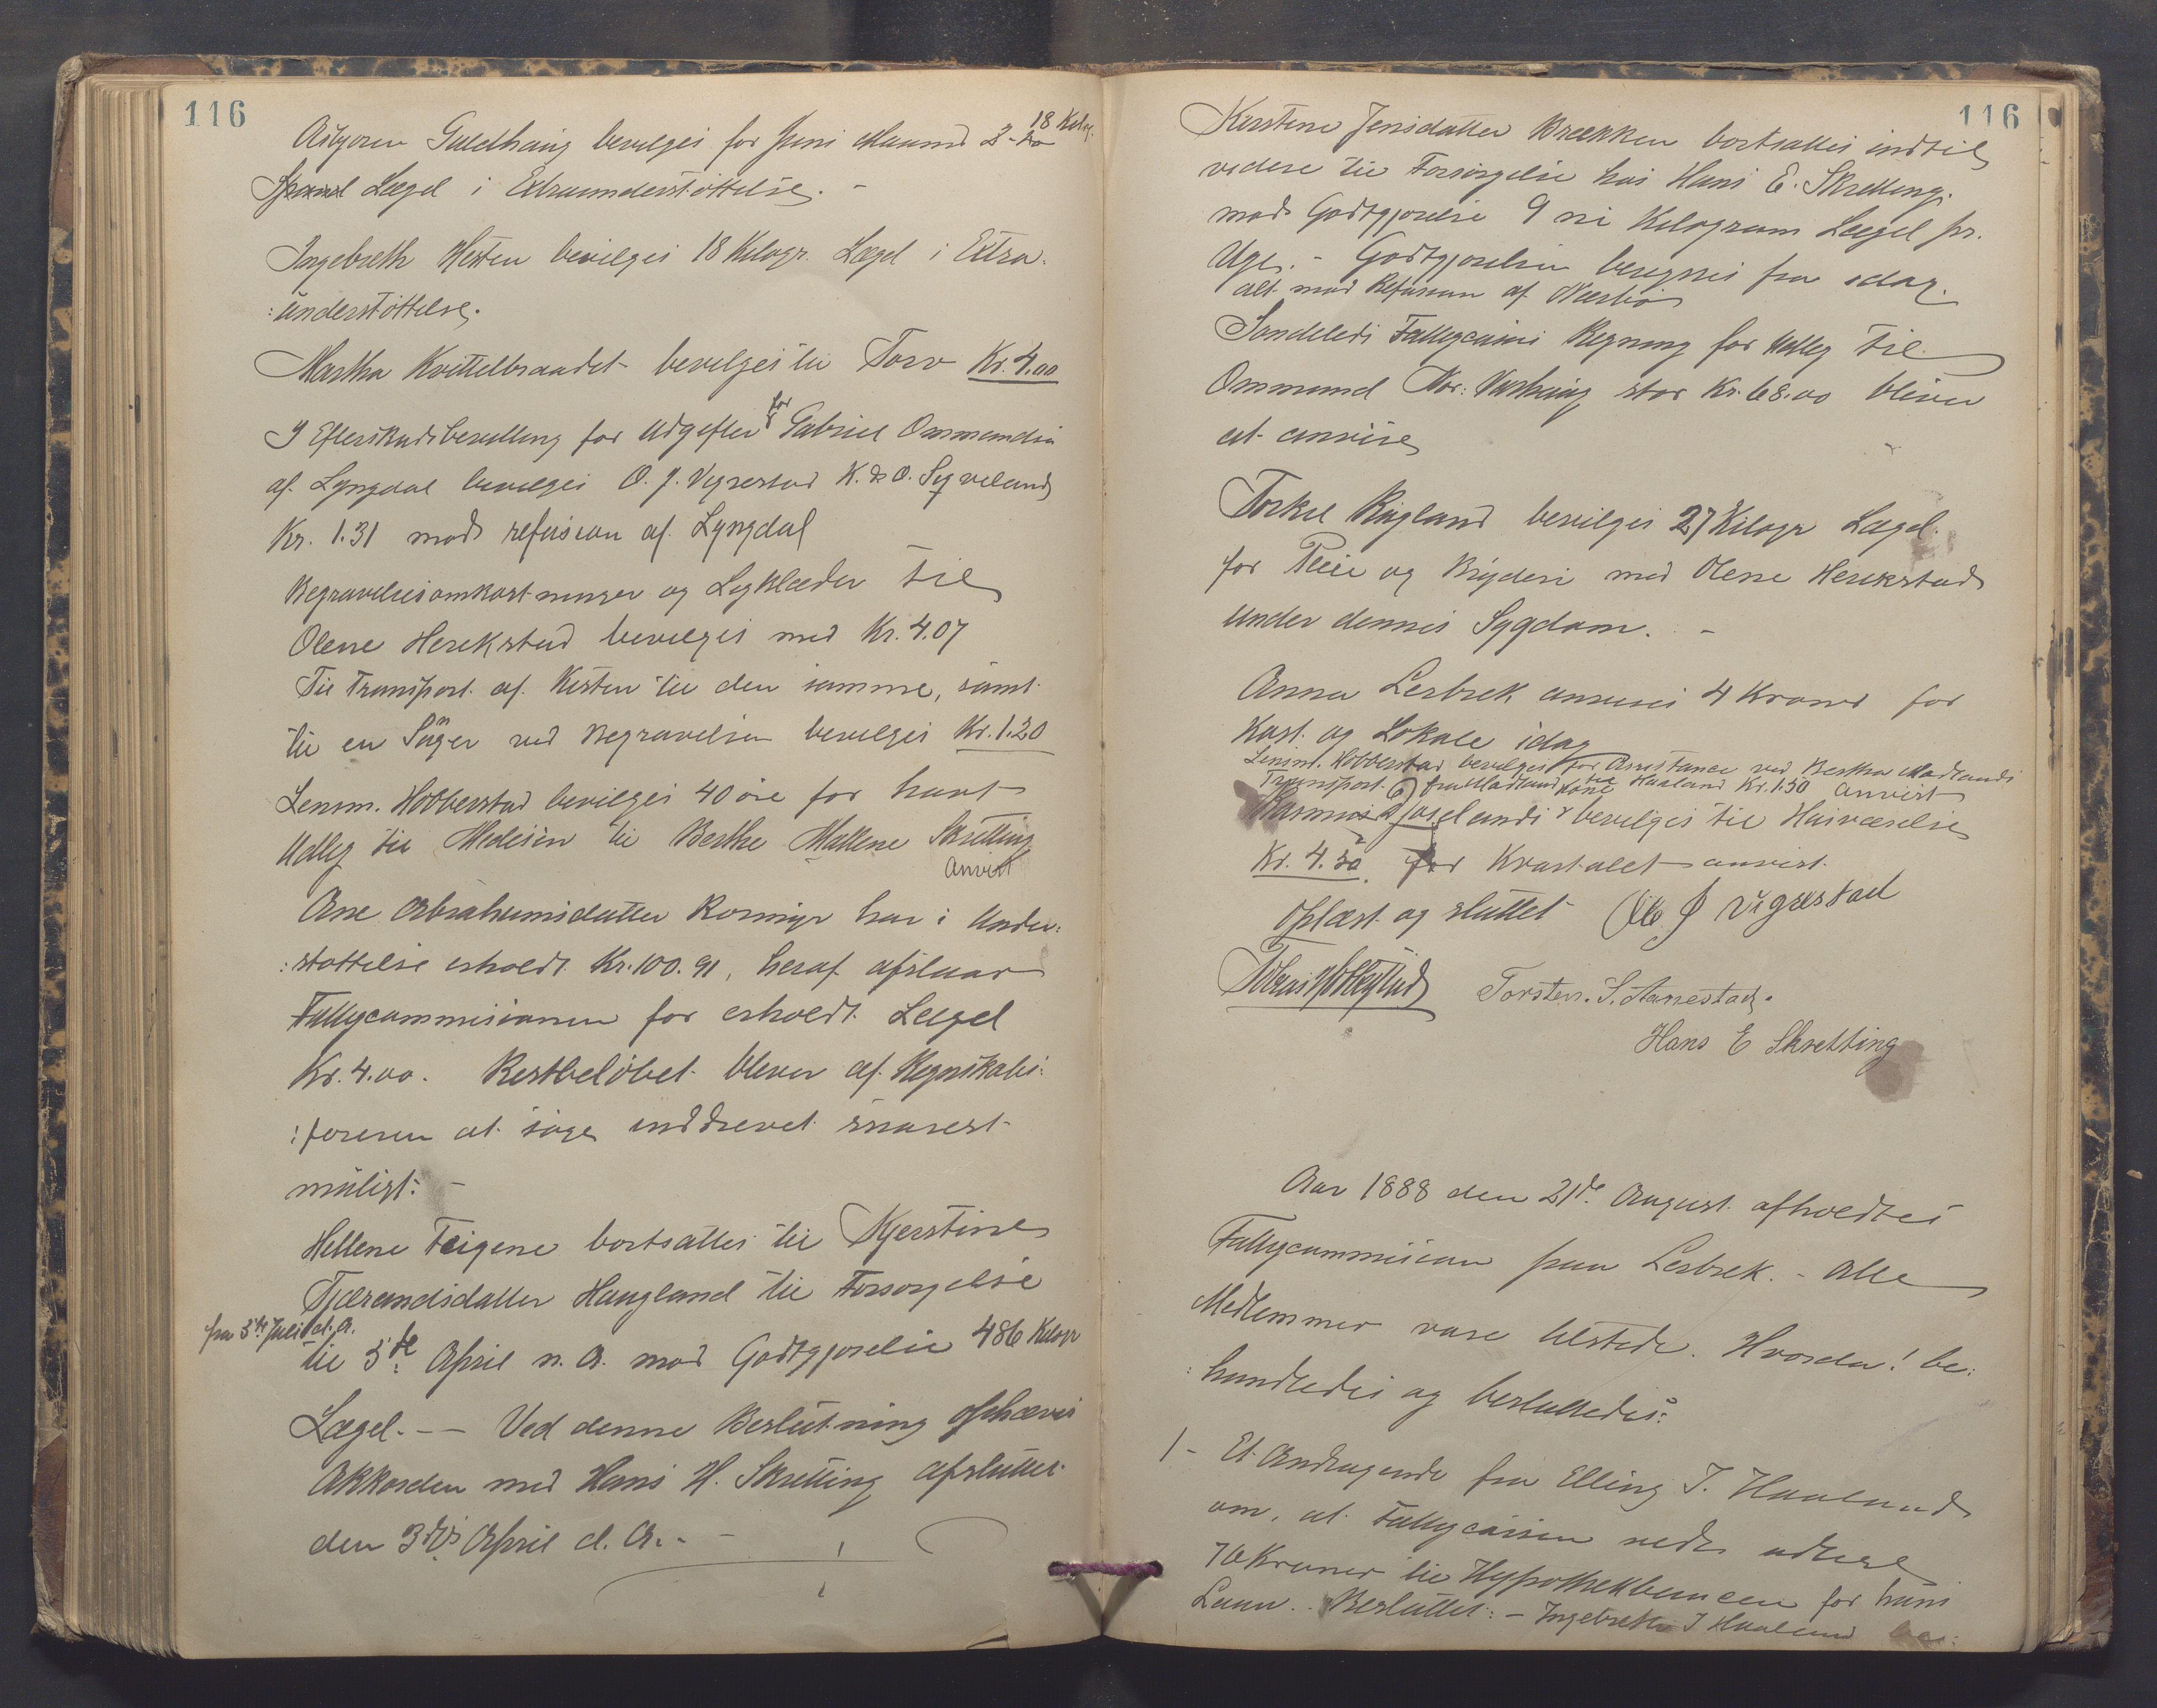 116
Asbjoren Guldhaug bevilges for Juni Maaned 18 Kilogr.
Lægd i Extraunderstöttelse. -
Ingebreth Westen bevilges 18 Kilogr. Lægd i Extra-
:understöttelse.
Martha Kvittelbraadet bevilges til Torv Kr. 4.00
I Efterskudsbevilling for Udgifter for Gabriel Ommundsen
af Lyngdal bevilges O. J. Vigrestad K. & O. Syveland
Kr. 1.31 mod refusion af Lyngdal
Begravelsesomkostninger og Ligklæder til
Olene Herikstad bevilges med Kr. 4.07
Til Transport af Kisten til den samme, samt
til en Sanger ved Begravelsen bevilges Kr. 1.20
Lensm. Hobberstad bevilges 40 öre for havt
Udlæg til Medesin til Berthe Mallene Skretting
Anvist
Ane Abrahamsdatter Rosmyr har i Under:
:stöttelse erholdt Kr. 100.91, heraf afslaar
Fattigcommisionen for erholdt Lægd
Kr. 4.00. Restbelöbet bliver af Regnskabs:
:föreren at söge inddrevet snarest
muligt: -
Hellene Teigene bortsattes til Kjerstine
Tjærandsdatter Haugland til Forsörgelse
fra 3de Juli d. A.
til 3de April n. A. mod Godtgjörelse 486 Kilogr
Lægd. -- Ved denne Beslutning ophæves
Akkorden med Hans H. Skretting afsluttet
den 3die April d. A. -
116
Kirstine Jensdatter Brækken bortsattes indtil
videre til Forsörgelse hos Hans E. Skretting.
mod Godtgjörelse 9 ni Kilogram Lægd pr.
Uge. - Godtgjörelsen beregnes fra idag.
alt mod Refusion af Nærbö
Söndeleds Fattigcasses Regning for Udlæg til
Ommund Nor: Varhaug stor Kr. 68.00 bliver
at anvise
Torkel Rugland bevilges 27 Kilogr Lægd
for Pleie og Bryderi med Olene Herikstad
under dennes Sygdom. -
Anna Lerbrek anvises 4 Kroner for
Kost og Lokale idag
Lensm. Hobberstad bevilges for Assistance ved Bertha Madlands
Transport fra Madland til Haaland Kr. 1.50 anvist
Rasmus Joselands Kone bevilges til Husværelse
Kr. 4.50 for Kvartalet anvist.
Oplæst og sluttet Ole J Vigrestad
Torsten. S. Aanestad.
Hans E Skretting
Aar 1888 den 21de August afholdtes
Fattigcommision paa Lerbrek. - Alle
Medlemmer vare tilstede. Hvorda! be:
:handledes og besluttedes:
1 - Et Andragende fra Elling T. Haaland
om, at Fattigcassen vilde udlægge
70 Kroner til Hypothekbanken for hans
Laan. Besluttet: - Ingebreth J Haaland